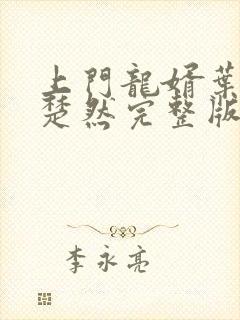 上門龍婿葉
楚然完整版
李永亮